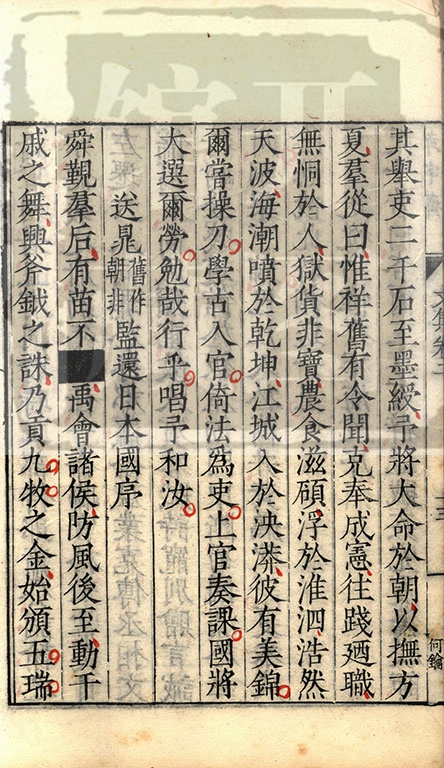 其舉吏二千石至墨綬予將大命於朝以撫方
夏羣從曰惟祥舊有令聞克奉成憲往踐廼職
無恫於人獄貨非寶農食滋碩浮於淮泗浩然
天波海潮噴於乾坤江城入於泱漭彼有美錦
爾嘗操刀學古入官倚法爲吏上官奏課國將
大選爾勞勉哉行乎唱予和汝
送晁舊作朝非監還日本國序
舜覲羣后有苗不■禹會諸侯防風後至動干
戚之舞興斧鉞之誅乃貢九牧之金始頒五瑞
何鑰